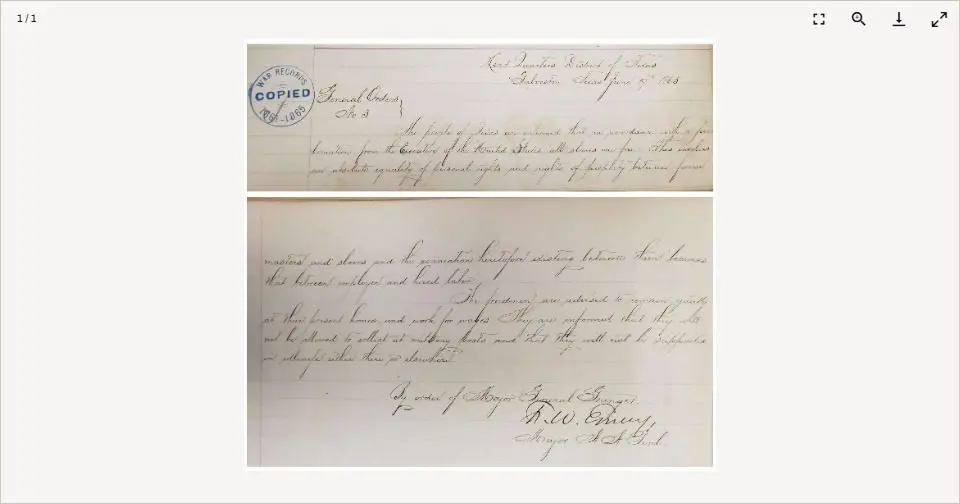 1 / 1
Head Quarters District of Texas
Galveston Texas June 19th 1865
WAR RECORDS
COPIED
1861-1865
General Orders
No 3
The people of Texas are informed that in accordance with a Proc
lamation from the Executive of the United States all slaves are free. This involves
an absolute equality of personal rights and rights of property between former
masters and slaves and the connection heretofore existing between them becomes
that between employer and hired labor.
The freedmen are advised to remain quietly
at their present homes and work for wages. They are informed that they will
not be allowed to collect at military posts and that they will not be supported
in idleness either there or elsewhere
By order of Major General Granger
F.W. Emery,
Major A. A. Genl.